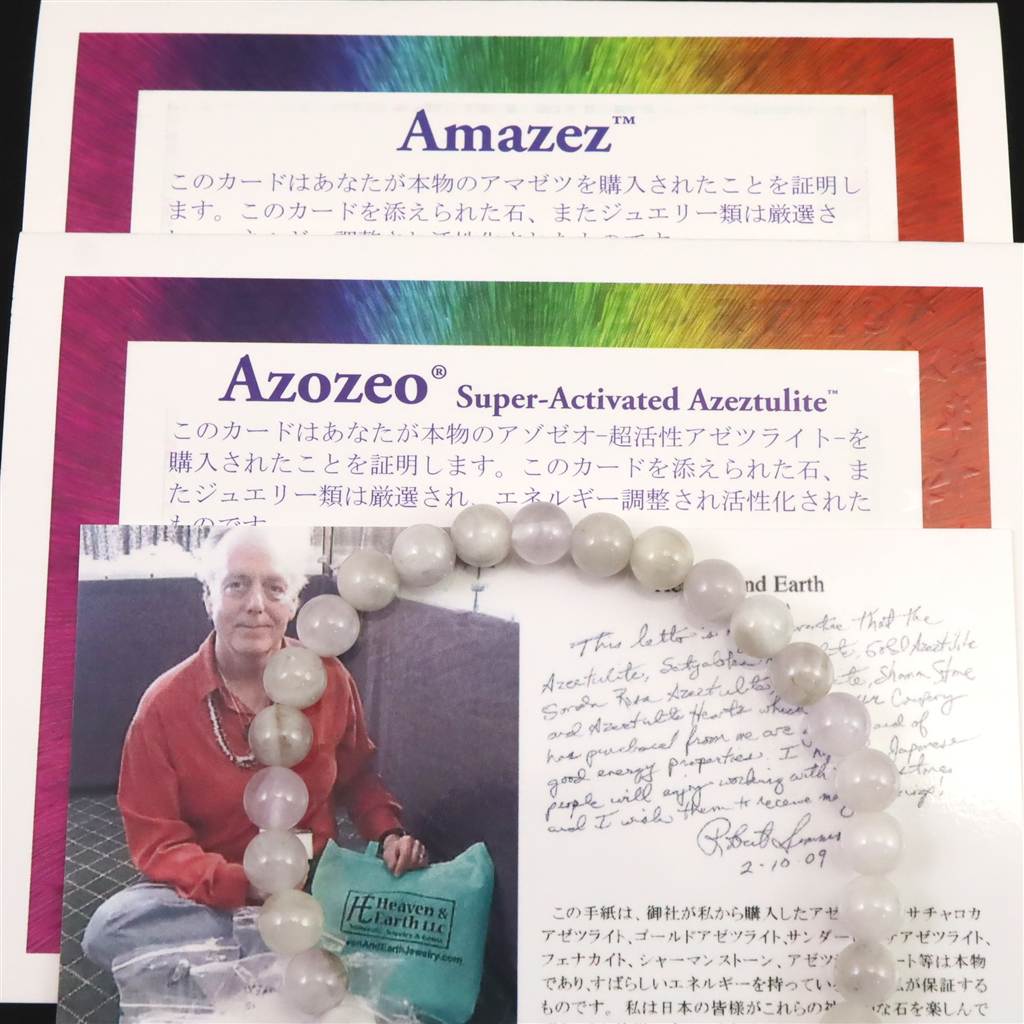 Amazez™
このカードはあなたが本物のアマゼツを購入されたことを証明し
ます。このカードを添えられた石、またジュエリー類は厳選さ
Azozeo® Super-Activated Azeztulite™
このカードはあなたが本物のアゾゼオ-超活性アゼツライト-を
購入されたことを証明します。このカードを添えられた石、ま
たジュエリー類は厳選され、エネルギー調整され活性化された
ものです。
nd Earth
This letter is that the
Azeztulite, Gold Azeztulite
Azeztulite, Shaman Stone
and Azeztulite Hearts which our Company
has purchased from me are and of
good energy properties. I Japanese
people will enjoy working with stones
and I wish them to receive
Robert Simmons
2-10 09
Heaven &
Earth LLC
Minerals, Jewelry & Gems
venAndEarthJewelry.com
この手紙は、御社が私から購入したアゼ サチャロカ
アゼツライト、ゴールドアゼツライト、サンダー アゼツライト、
フェナカイト、シャーマンストーン、アゼツ ート等は本物
であり、すばらしいエネルギーを持ってい 私が保証する
ものです。 私は日本の皆様がこれらの な石を楽しんで